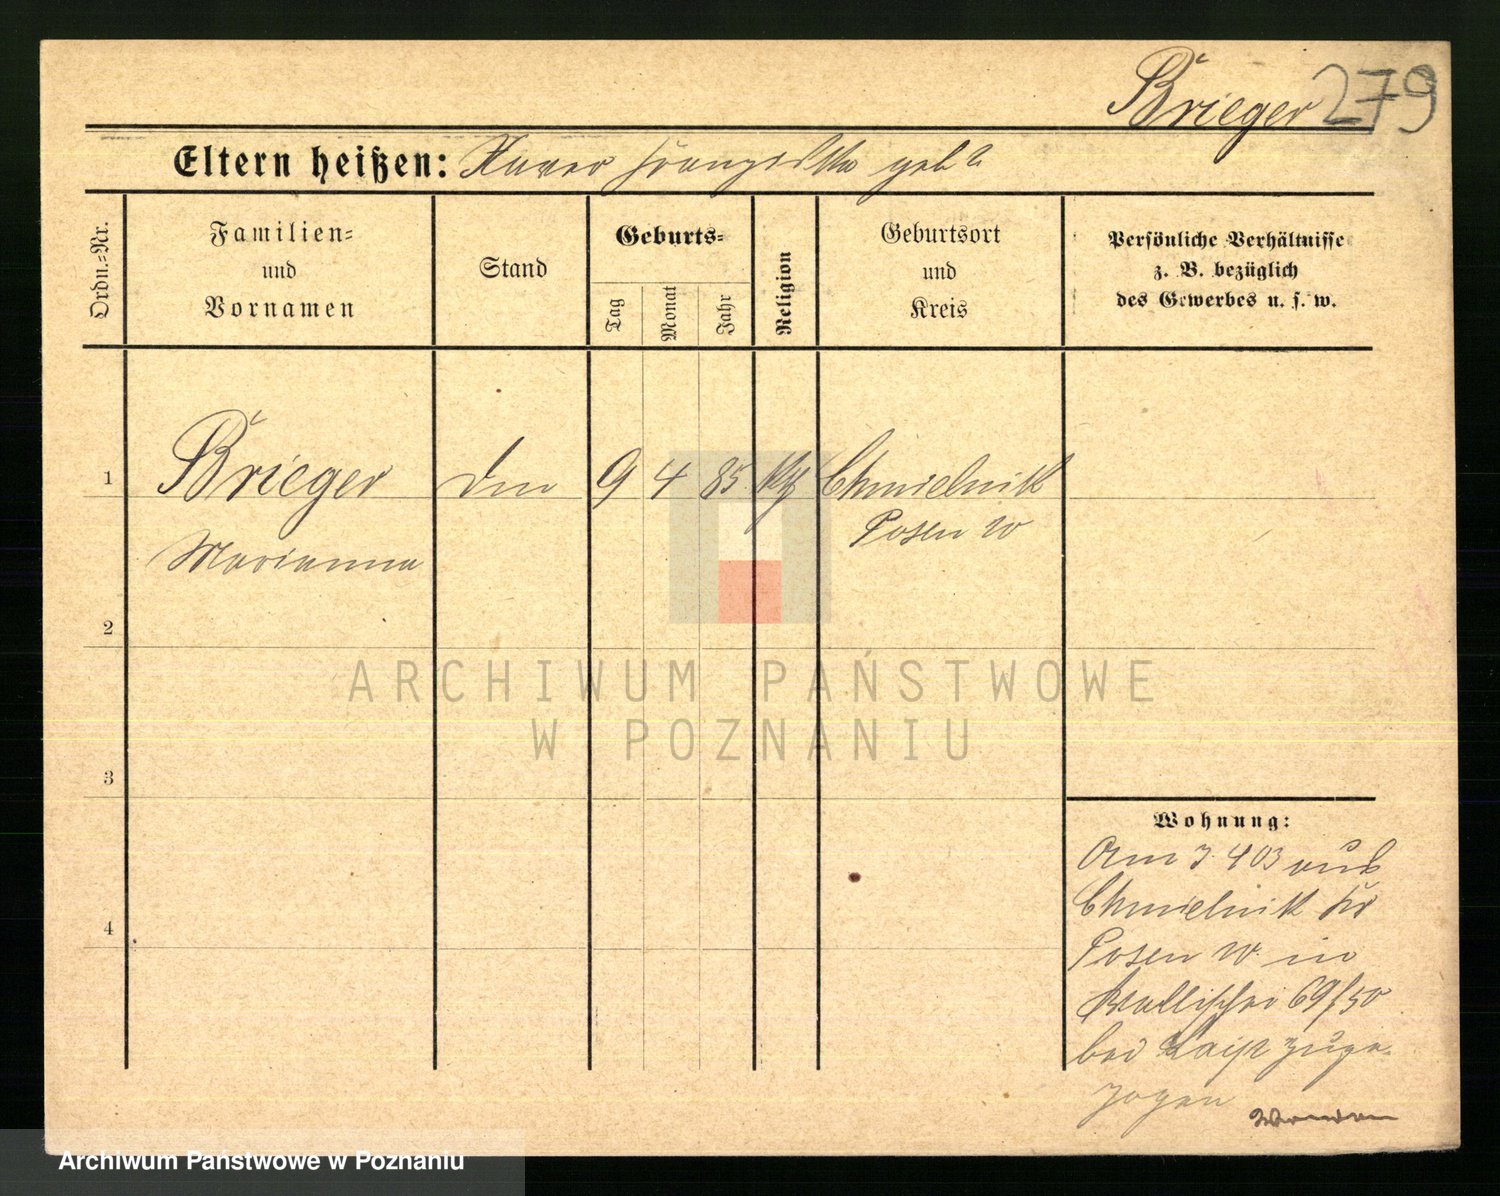 Brieger 279
Eltern heißen: Xaver Franziska geb
Ordn.=Nr.
Familien=
und
Vornamen
Stand
Geburts=
Tag
Monat
Jahr
Religion
Geburtsort
und
Kreis
Persönliche Verhältnisse
z. B. bezüglich
des Gewerbes u. s. w.
1 Brieger 9 4 85 Chmielnik
Marianna Posen W
2
3
4
Wohnung:
Am 3 4 03 aus
Chmielnik Kr
Posen W. in
Wallischei 69/50
bei zuge
zogen
ARCHIWUM PAŃSTWOWE
W POZNANIU
Archiwum Państwowe w Poznaniu